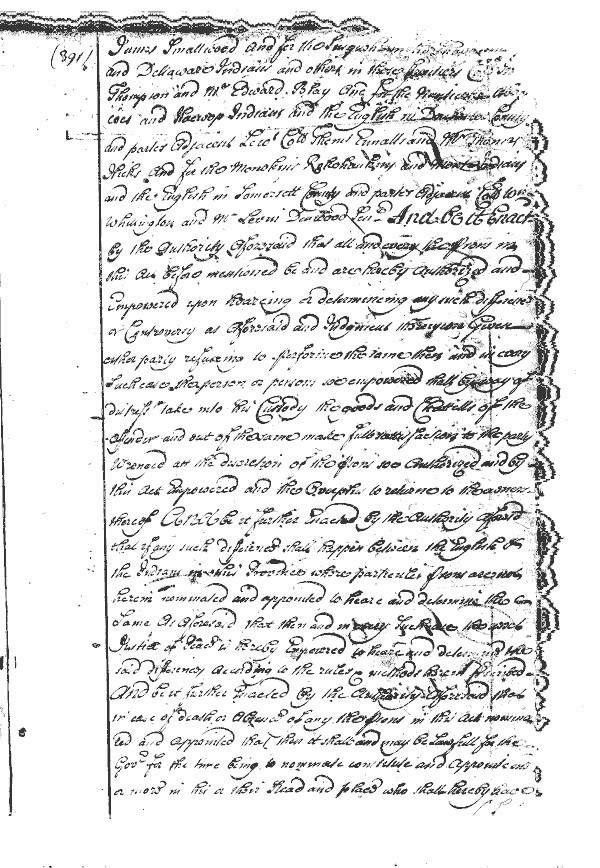 (391)
James Smallwood and for the Susquehannoughs
and Dellaware Indians and others in those
Thompson and Mr Edward Blay And for the Nanticoke
cocs and Indians and the English in Dorchester County
and partes Adjacent Coll Thoms Ennalls and Mr Thomas
Hicks And for the Monokin and Indians
and the English in Somersett County and partes Adjacent
Whittington and Mr Levin Denwood And be it Enact
by the Authority aforesaid that all and every the psons in
this Act before mentioned be and are hereby Authorized and
Empowered upon heareing or determineing any such difference
or Controversy as aforesaid and Judgment thereupon Given
either party refuseing to performe the same then and in every
such case the person or persons soe empowered shall by way of
distress take into his Custody the goods and Chattells of the
offender and out of the same make full satisfaction to the party
wronged att the discretion of the psons soe Authorized and by
this Act Empowered and the to returne to the owners
thereof And be it further Enacted by the Authority aforesd
that if any such difference shall happen between the English &
the Indians in this Province where particuler psons are not
herein nominated and appointed to heare and determine the
same As aforesaid that then and in every such case the next
Justice of Peace is hereby Empowered to heare and determine the
said difference According to the rules & methods herein
And be it further Enacted by the Authority aforesaid that
in case of death or Absence of any the psons in this Act nomina
ted and appointed that then it shall and may be lawfull for the
Govr for the time being to nominate constitute and Appoint one
or more in his or their stead and place who shall hereby have